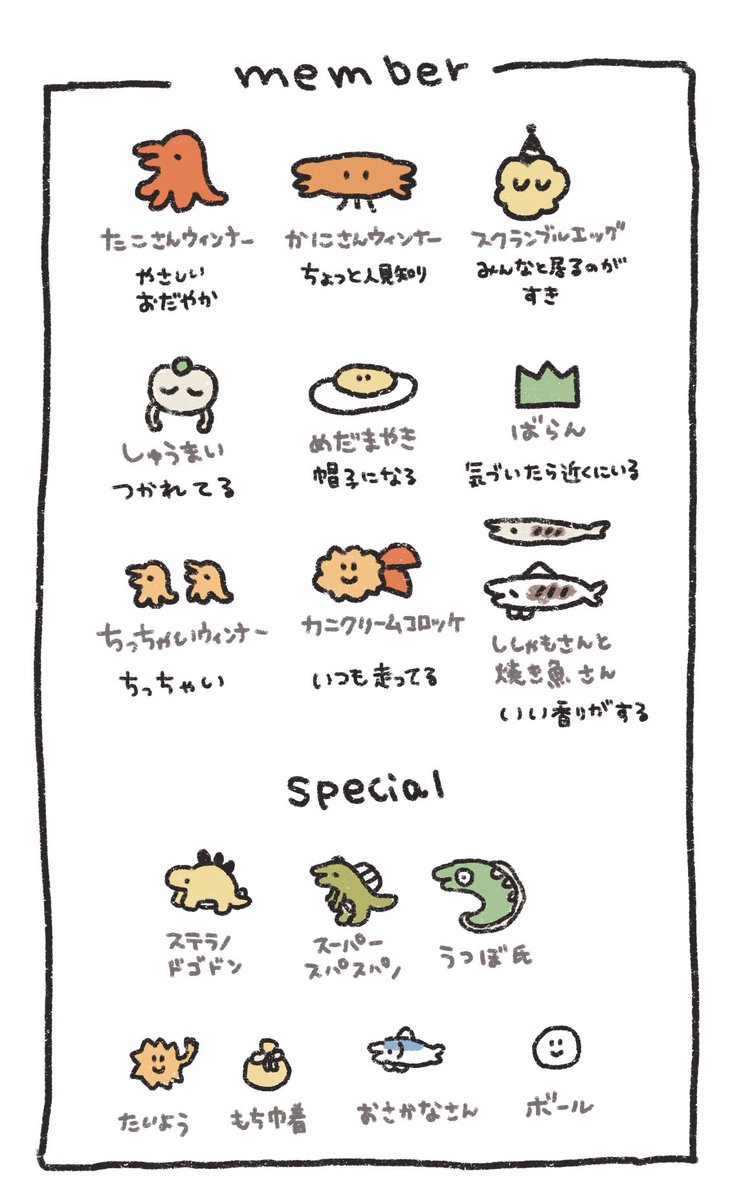 member
たこさんウィンナー
やさしい
おだやか
かにさんウィンナー
ちょっと人見知り
スクランブルエッグ
みんなと居るのが
すき
しゅうまい
つかれてる
めだまやき
帽子になる
ばらん
気づいたら近くにいる
ちっちゃいウィンナー
ちっちゃい
カニクリームコロッケ
いつも走ってる
ししゃもさんと
焼き魚さん
いい香りがする
special
ステラノ
ドゴドン
スーパー
スパスパノ
うつぼ氏
たいよう
もち巾着
おさかなさん
ボール